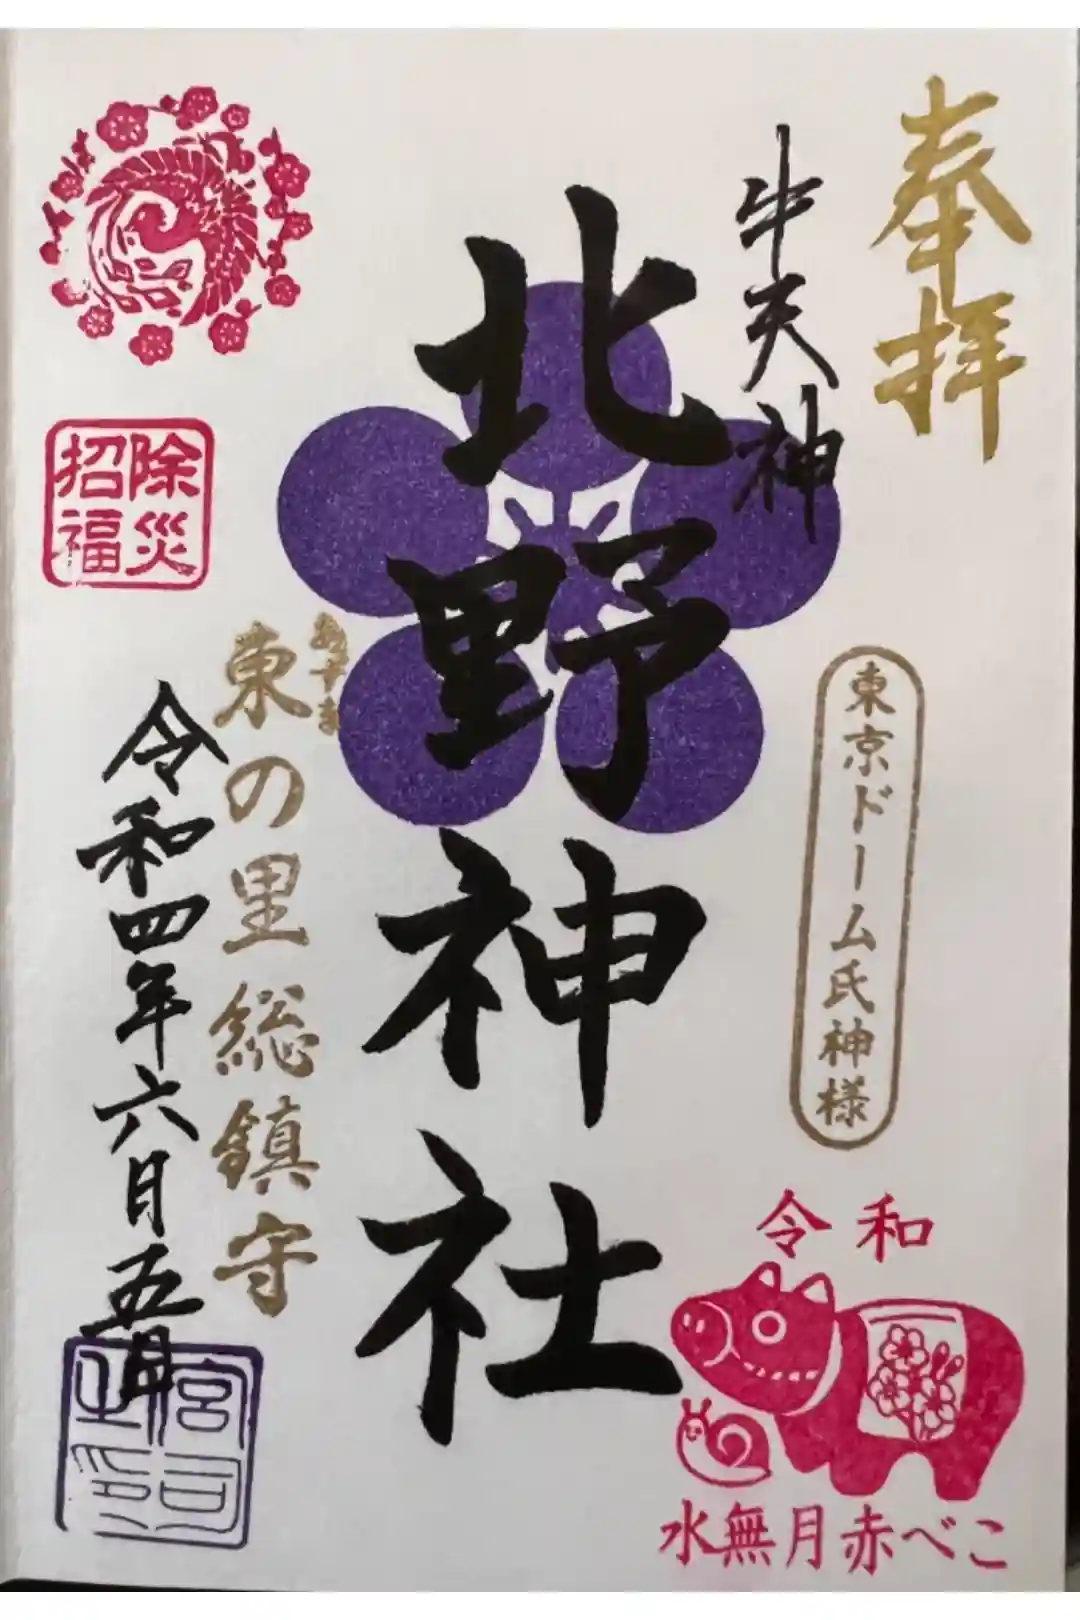 奉拝
牛天神
北野神社
東京ドーム氏神様
除災
招福
あずま
東の里総鎮守
令和四年六月五日
宮司
之印
令和
水無月赤べこ